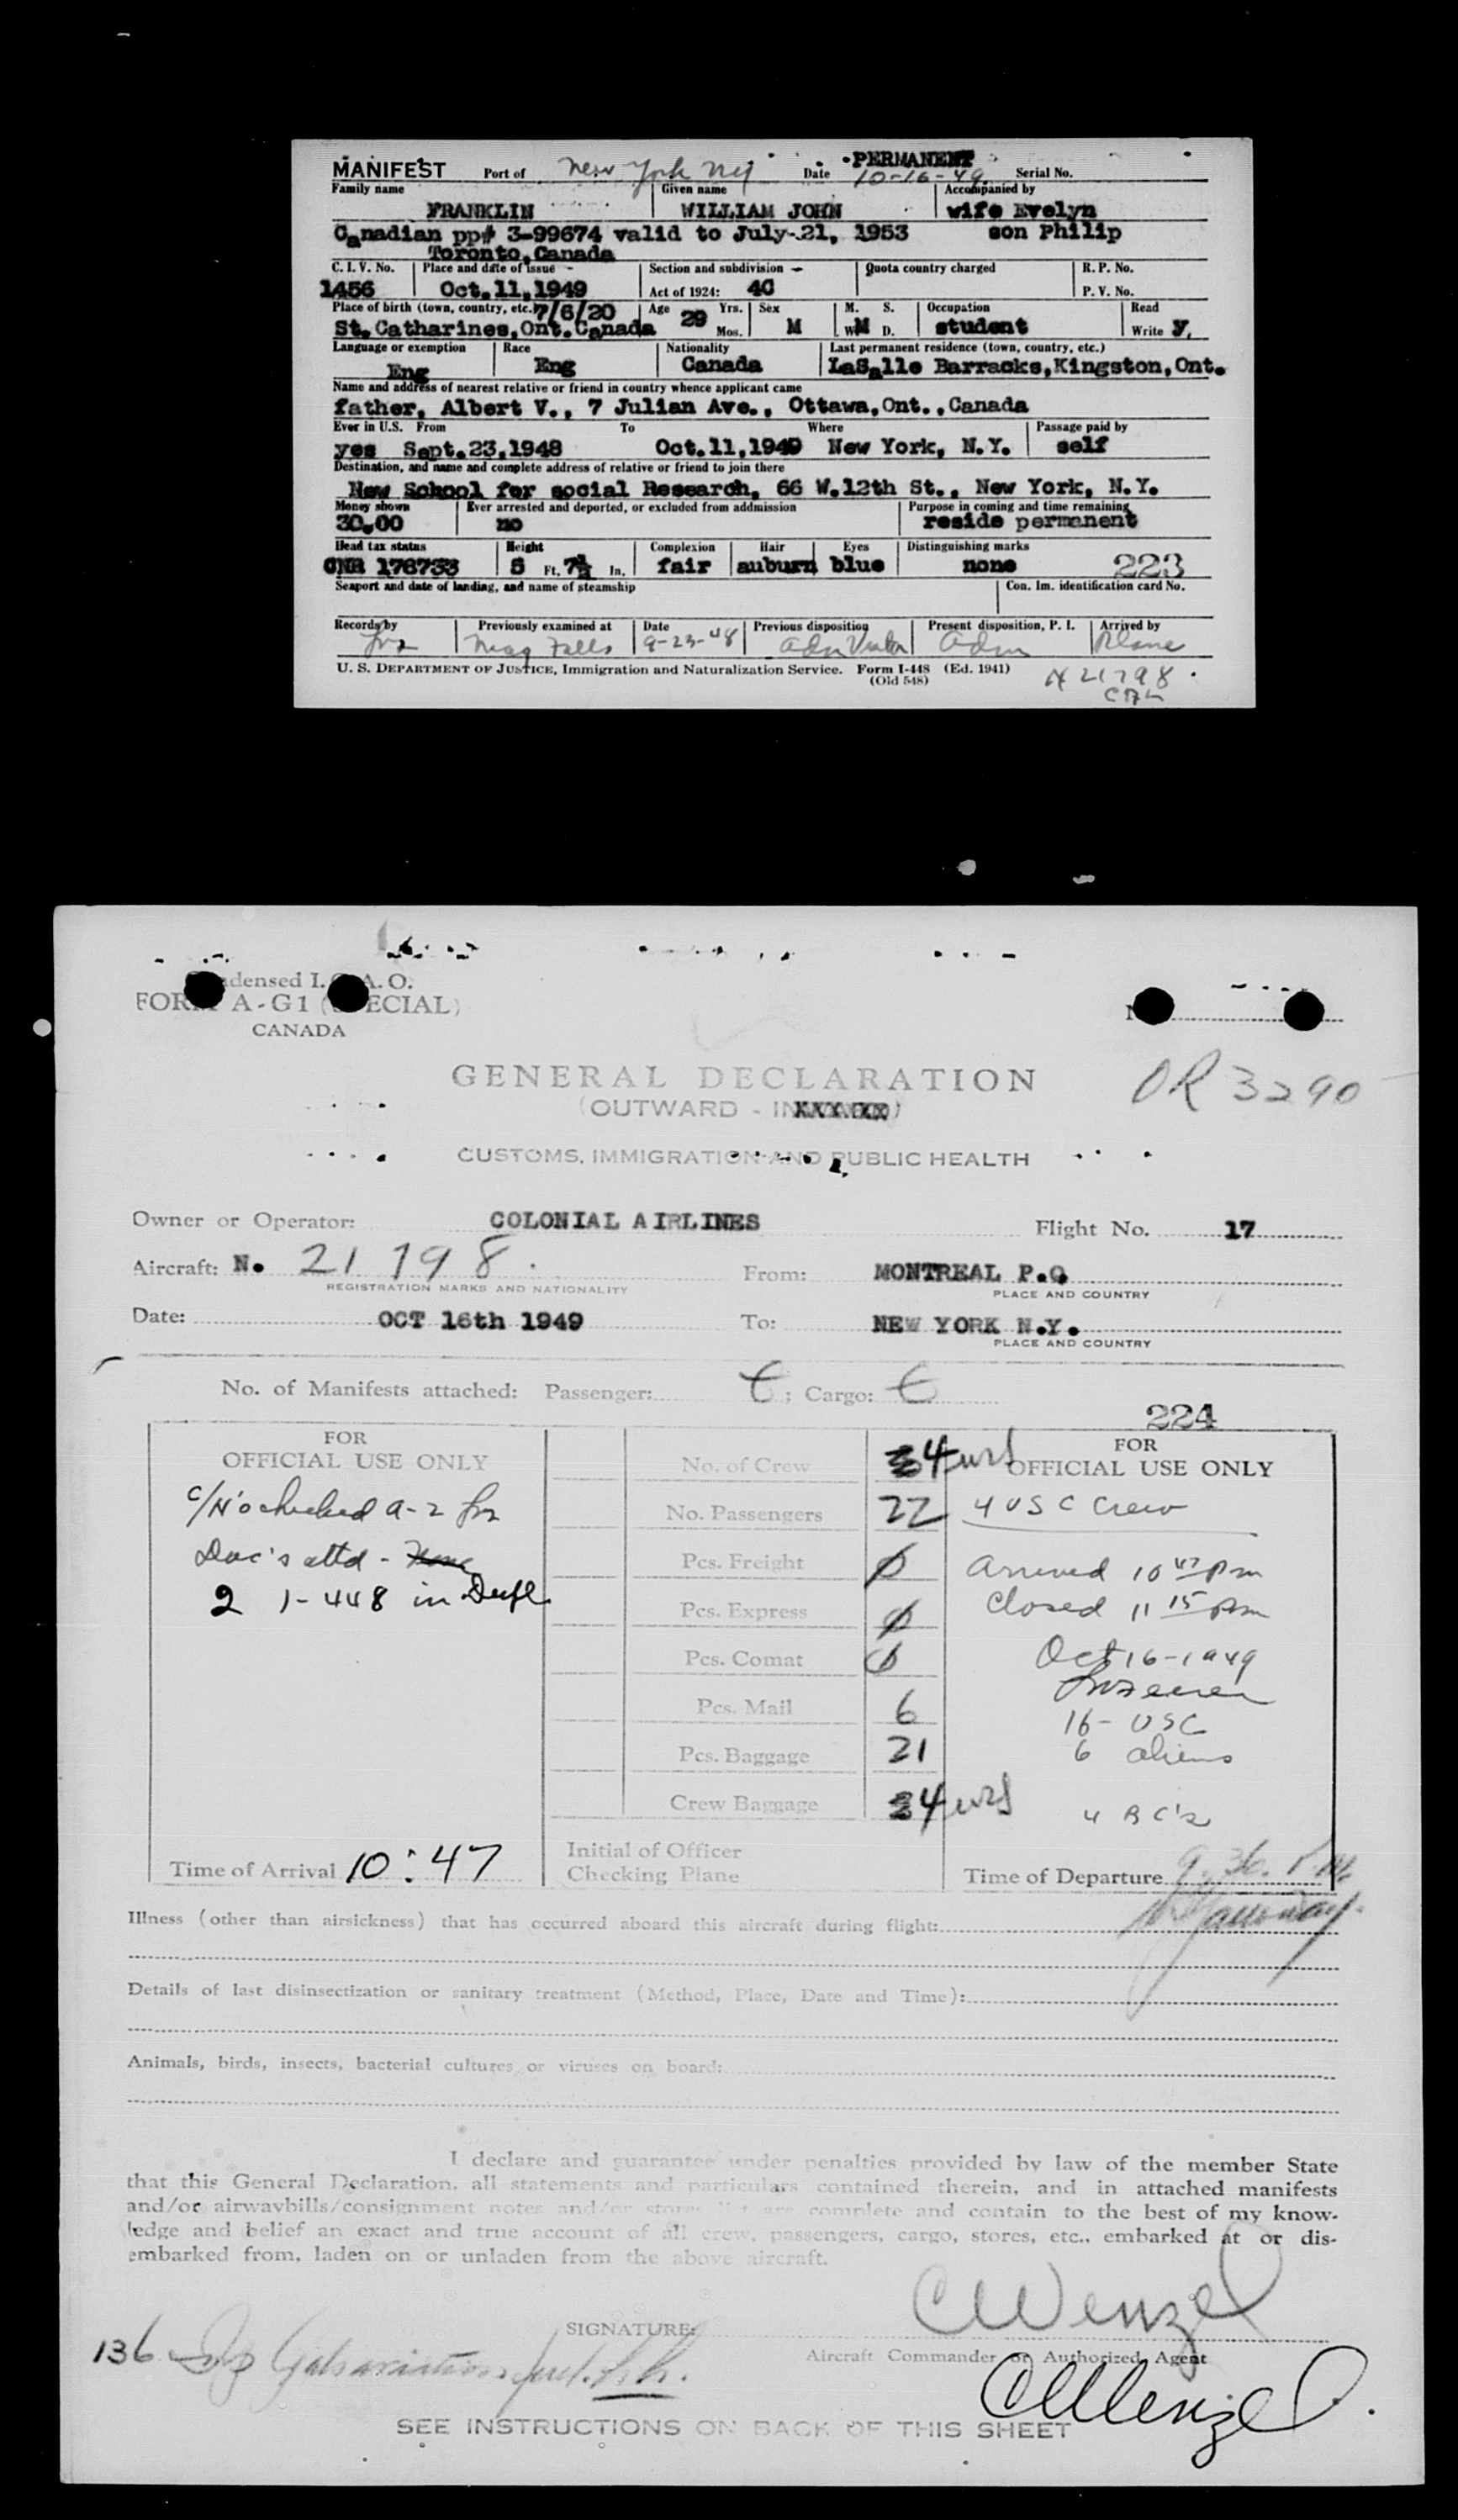 MANIFEST Port of New York NY Date PERMANENT 10-16-49 Serial No.
Family name Given name Accompanied by
FRANKLIN WILLIAM JOHN wife Evelyn
Canadian pp# 3-99674 valid to July-21, 1953 son Philip
Toronto, Canada
C. I. V. No. Place and date of issue Section and subdivision Quota country charged R. P. No.
1456 Oct.11,1949 Act of 1924: 4C P. V. No.
Place of birth (town, country, etc.) 7/6/20 Age 29 Yrs. Mos. Sex M. S. Occupation Read
St.Catharines,Ont.Canada M W M D. student Write y.
Language or exemption Race Nationality Last permanent residence (town, country, etc.)
Eng Eng Canada LaSalle Barracks,Kingston,Ont.
Name and address of nearest relative or friend in country whence applicant came
father, Albert V., 7 Julian Ave., Ottawa,Ont.,Canada
Ever in U.S. From To Where Passage paid by
yes Sept.23,1948 Oct.11,1949 New York, N.Y. self
Destination, and name and complete address of relative or friend to join there
New School for social Research, 66 W.12th St., New York, N.Y.
Money shown Ever arrested and deported, or excluded from admission Purpose in coming and time remaining
30.00 no reside permanent
Head tax status Height Complexion Hair Eyes Distinguishing marks
CNR 176733 5 Ft. 7½ In. fair auburn blue none 223
Seaport and date of landing, and name of steamship Con. Im. identification card No.
Records by Previously examined at Date Previous disposition Present disposition, P. I. Arrived by
Niag Falls 9-23-48 Adm Visitor Adm Plane
U. S. DEPARTMENT OF JUSTICE, Immigration and Naturalization Service. Form I-448 (Ed. 1941)
(Old 548)
N 21798
CAL
Condensed I.C.A.O.
FORM A-G1 (SPECIAL)
CANADA
GENERAL DECLARATION
OR 3290
(OUTWARD - INXXXXXX)
CUSTOMS, IMMIGRATION AND PUBLIC HEALTH
Owner or Operator: COLONIAL AIRLINES Flight No. 17
Aircraft: N. 21798 From: MONTREAL P.Q
REGISTRATION MARKS AND NATIONALITY PLACE AND COUNTRY
Date: OCT 16th 1949 To: NEW YORK N.Y.
PLACE AND COUNTRY
No. of Manifests attached: Passenger: ; Cargo:
224
FOR
OFFICIAL USE ONLY
c/N's checked a-2
Doc's attd - None
2 1-448 in Dupl
Time of Arrival 10:47
No. of Crew 4
No. Passengers 22
Pcs. Freight 0
Pcs. Express 0
Pcs. Comat 0
Pcs. Mail 6
Pcs. Baggage 21
Crew Baggage 4
Initial of Officer
Checking Plane
FOR
OFFICIAL USE ONLY
4 USC Crew
Arrived 10 47 Pm
Closed 11 15 Pm
Oct 16-1949
16- USC
6 aliens
4 BC's
Time of Departure 9.36. P.M.
Illness (other than airsickness) that has occurred aboard this aircraft during flight:
Details of last disinsectization or sanitary treatment (Method, Place, Date and Time):
Animals, birds, insects, bacterial cultures or viruses on board:
I declare and guarantee under penalties provided by law of the member State
that this General Declaration, all statements and particulars contained therein, and in attached manifests
and/or airwaybills/consignment notes and/or stores list are complete and contain to the best of my know-
ledge and belief an exact and true account of all crew, passengers, cargo, stores, etc., embarked at or dis-
embarked from, laden on or unladen from the above aircraft.
SIGNATURE: CWenzel
Aircraft Commander or Authorized Agent
136
CWenzel
SEE INSTRUCTIONS ON BACK OF THIS SHEET